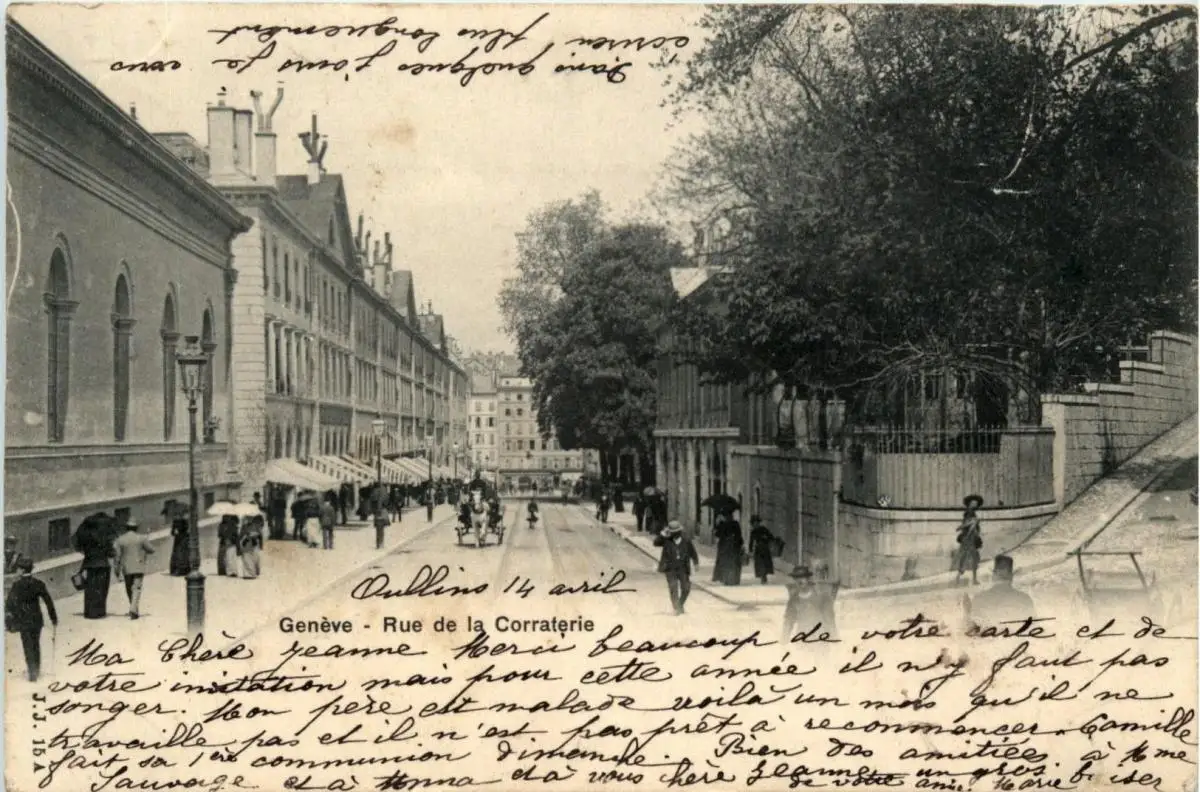 Oullins 14 avril
Genève - Rue de la Corraterie
Ma Chère Jeanne Merci beaucoup de votre carte et de
votre invitation mais pour cette année il n'y faut pas
songer. Mon père est malade voilà un mois qu'il ne
travaille pas et il n'est pas prêt à recommencer. Camille
fait sa 1ère communion dimanche. Bien des amitiés à Mme
Sauvage et à Anna et à vous chère Jeanne un gros baiser
de votre amie Marie
Dans quelques jours je vous
écrirai plus longuement
J. J. 15 A